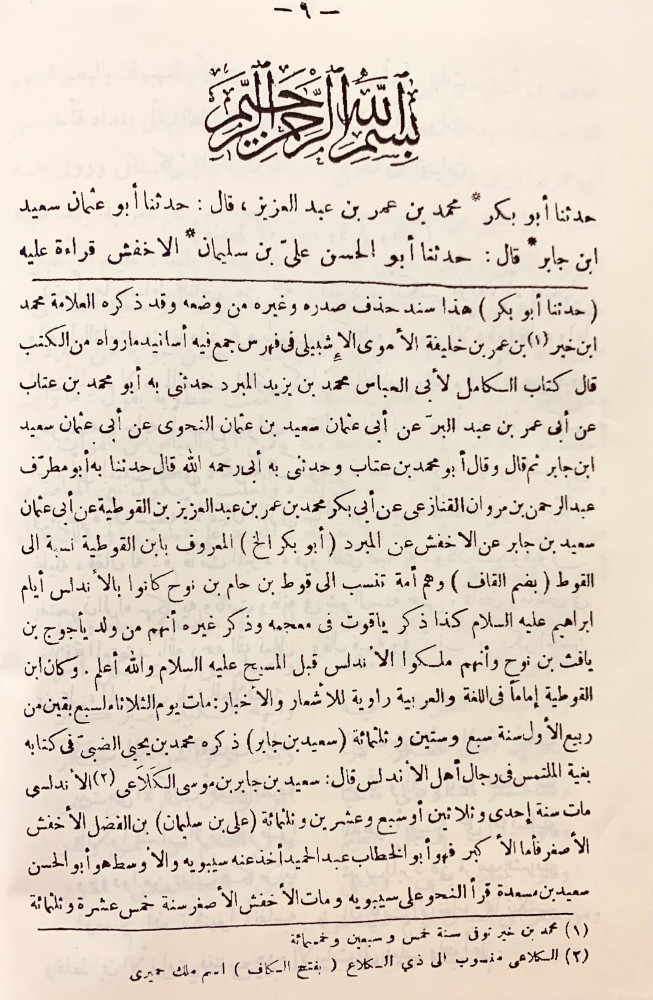 — ٩ —
بسم الله الرحمن الرحيم
حدثنا أبو بكر* محمد بن عمر بن عبد العزيز ، قال : حدثنا أبو عثمان سعيد
ابن جابر* قال : حدثنا أبو الحسن علىّ بن سليمان* الاخفش قراءة عليه
( حدثنا أبو بكر ) هذا سند حذف صدره وغيره من وضعه وقد ذكره العلامة محمد
ابن خير (١) بن عمر بن خليفة الأموى الإشبيلى فى فهرس جمع فيه أسانيد مارواه من الكتب
قال كتاب الكامل لأبى العباس محمد بن يزيد المبرد حدثنى به أبو محمد بن عتاب
عن أبى عمر بن عبد البرّ عن أبى عثمان سعيد بن عثمان النحوى عن أبى عثمان سعيد
ابن جابر ثم قال وقال أبو محمد بن عتاب وحدثنى به أبى رحمه الله قال حدثنا به أبو مطرّف
عبد الرحمن بن مروان القنازعى عن أبى بكر محمد بن عمر بن عبد العزيز بن القوطية عن أبى عثمان
سعيد بن جابر عن الاخفش عن المبرد ( أبو بكر الخ ) المعروف بابن القوطية نسبة الى
القوط ( بضم القاف ) وهم أمة تنسب الى قوط بن حام بن نوح كانوا بالأندلس أيام
ابراهيم عليه السلام كذا ذكر ياقوت فى معجمه وذكر غيره أنهم من ولد يأجوج بن
يافث بن نوح وأنهم ملكوا الأندلس قبل المسيح عليه السلام والله أعلم . وكان ابن
القوطية إماماً فى اللغة والعربية راوية للأشعار والأخبار : مات يوم الثلاثاء لسبع بقين من
ربيع الأول سنة سبع وستين وثلثمائة (سعيد بن جابر) ذكره محمد بن يحيى الضبىّ فى كتابه
بغية الملتمس فى رجال أهل الأندلس قال : سعيد بن جابر بن موسى الكَلَاعى (٢) الأندلسى
مات سنة إحدى وثلاثين أوسبع وعشرين وثلثمائة (على بن سليمان) بن الفضل الأخفش
الأصغر فأما الأكبر فهو أبو الخطاب عبد الحميد أخذ عنه سيبويه والأوسط هو أبو الحسن
سعيد بن مسعدة قرأ النحو على سيبويه ومات الأخفش الأصغر سنة خمس عشرة وثلثمائة
(١) محمد بن خير توفى سنة خمس وسبعين وخمسمائة
(٢) الكلاعى منسوب الى ذى الكلاع ( بفتح الكاف ) اسم ملك حميرى